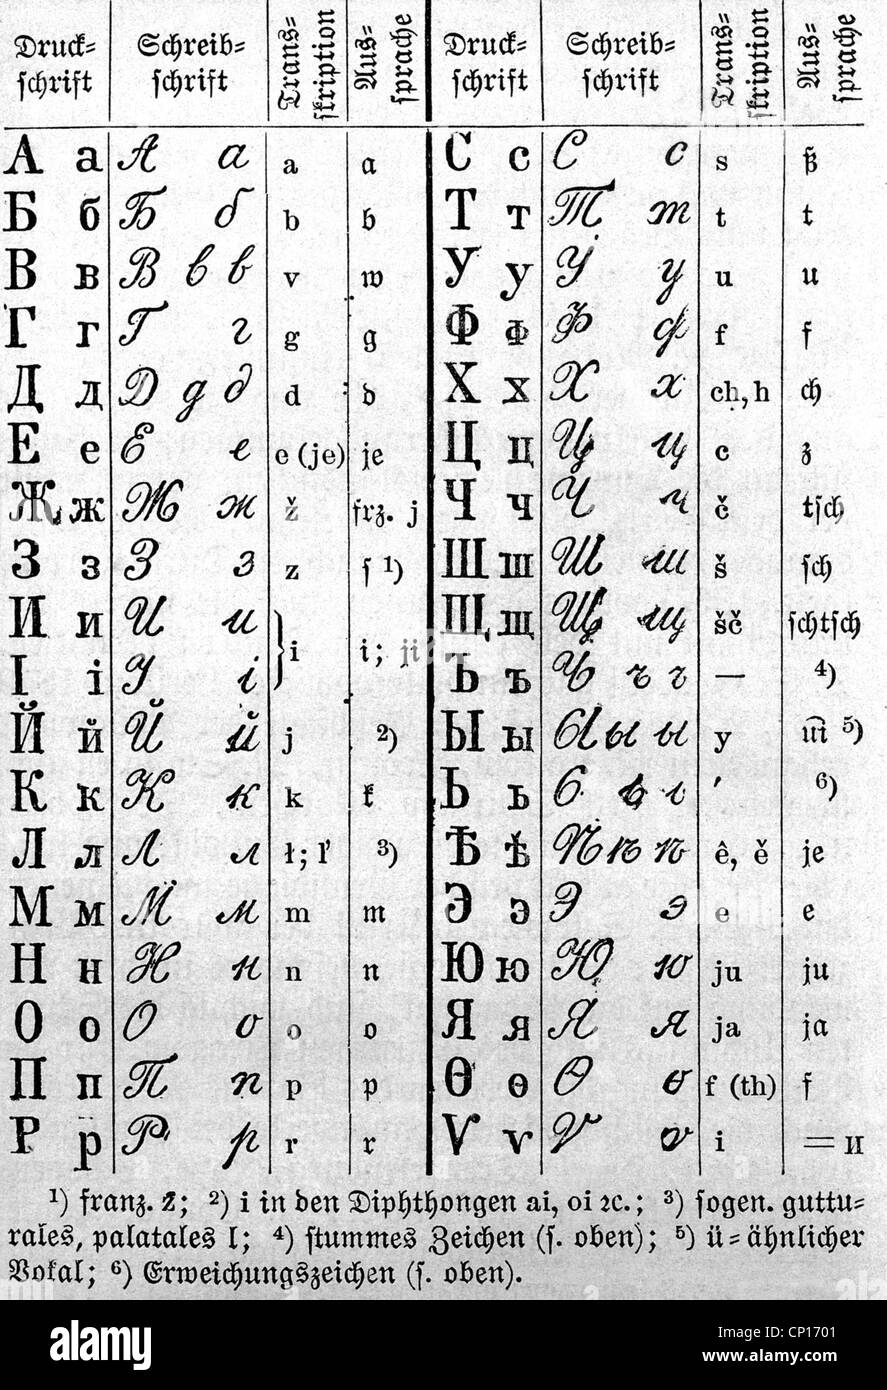 Druck- Schreib- Trans- Aus- Druck- Schreib- Trans- Aus-
schrift schrift skription sprache schrift schrift skription sprache
А а А а a a С с С с s ß
Б б Б б b b Т т Т т t t
В в В в в v w У у У у u u
Г г Г г g g Ф ф Ф ф f f
Д д Д д д d d Х х Х х ch, h ch
Е е Е е e (je) je Ц ц Ц ц c z
Ж ж Ж ж ž frz. j Ч ч Ч ч č tsch
З з З з z s ¹) Ш ш Ш ш š sch
И и И и i i; ji Щ щ Щ щ šč schtsch
І і І і Ъ ъ Ъ ъ ъ — ⁴)
Й й Й й j ²) Ы ы Ы ы ы y ⁵)
К к К к k k Ь ь Ь ь ь ′ ⁶)
Л л Л л ł; l' ³) Ѣ ѣ Ѣ ѣ ѣ ê, ě je
М м М м m m Э э Э э e e
Н н Н н n n Ю ю Ю ю ju ju
О о О о o o Я я Я я ja ja
П п П п p p Ѳ ѳ Ѳ ѳ f (th) f
Р р Р р r r Ѵ ѵ Ѵ ѵ i = и
¹) franz. z; ²) i in den Diphthongen ai, oi ꝛc.; ³) sogen. guttu-
rales, palatales l; ⁴) stummes Zeichen (s. oben); ⁵) ü-ähnlicher
Vokal; ⁶) Erweichungszeichen (s. oben).
alamy
Image ID: CP1701
www.alamy.com